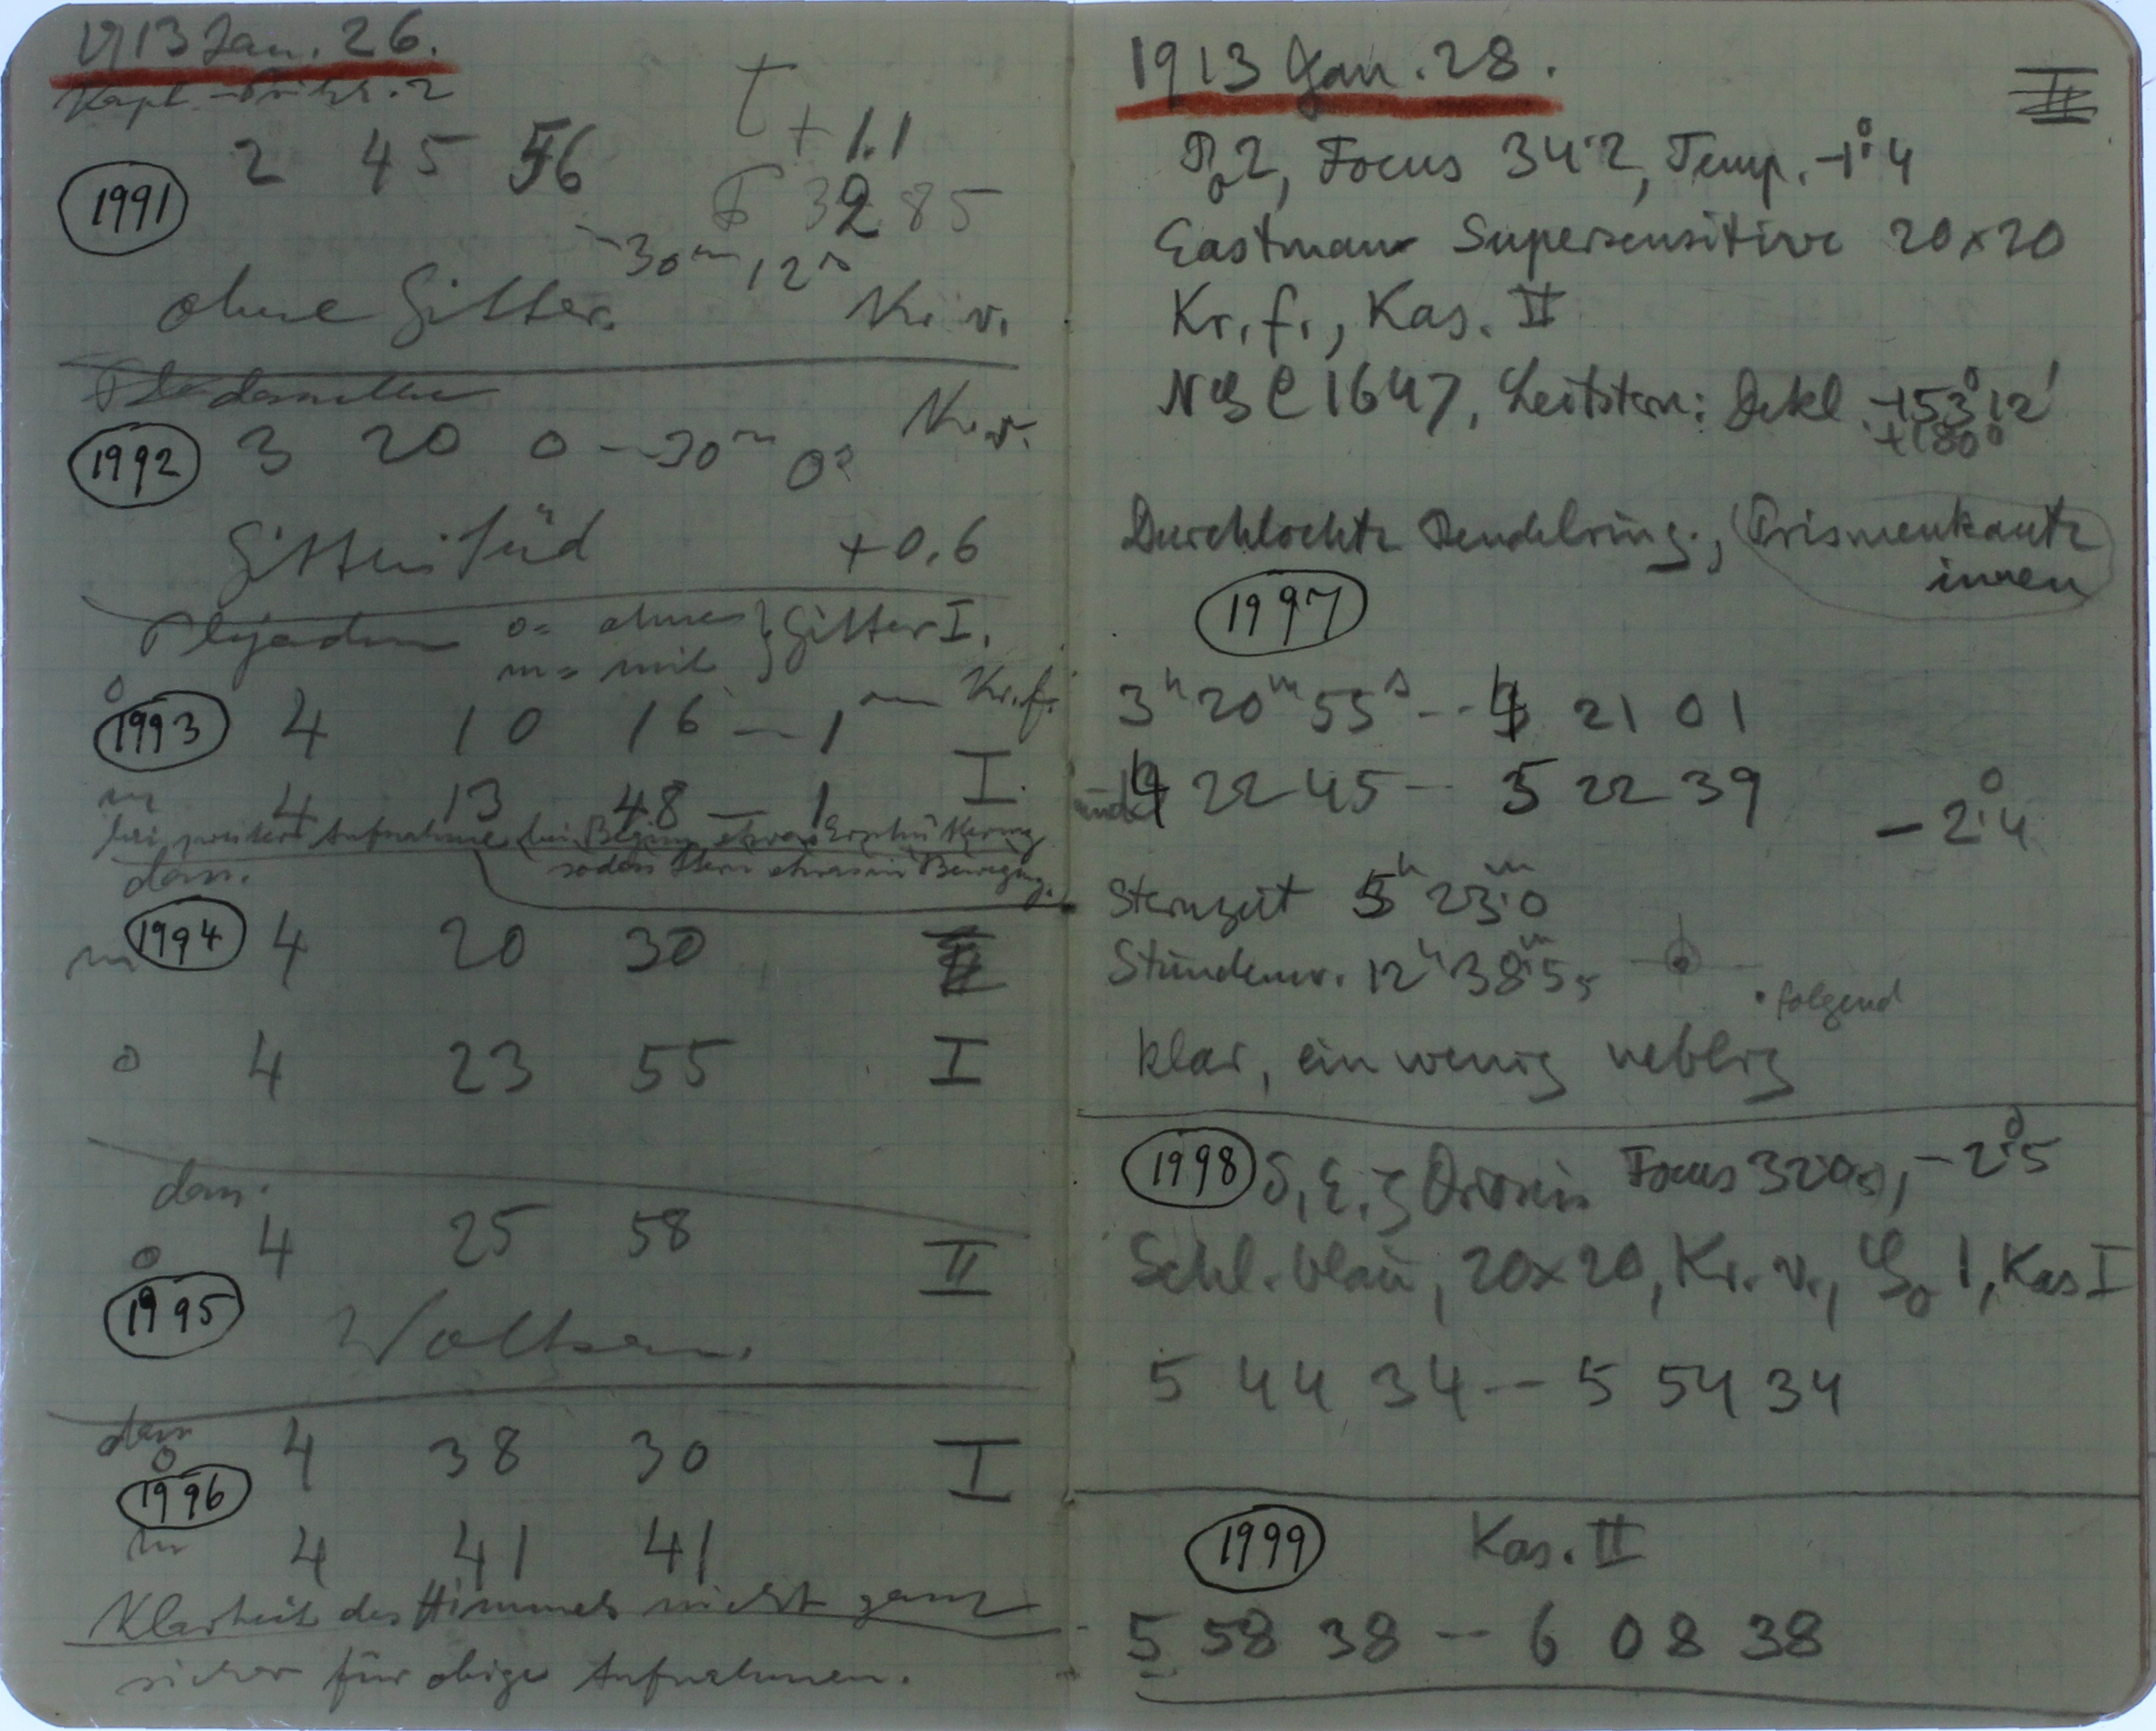 1913 Jan. 26.
t + 1.1
1991 2 45 56
F 3285
- 30m 12s
ohne Gitter. Kr. v.
Kr. v.
1992 3 20 0 - 30m 0s
Gitter Süd + 0.6
Plejaden o = ohne } Gitter I.
m = mit
o
1993 4 10 16 - 1m Kr. f.
m 4 13 48 - 1 I.
bei Aufnahme bei Beginn etwas Erschütterung
sodass Stern etwas in Bewegung.
dass.
m 1994 4 20 30 II
o 4 23 55 I
dass.
4 25 58 II
o
1995 Wolken.
dass
o 4 38 30 I
1996
m 4 41 41
Klarheit des Himmels nicht ganz
sicher für obige Aufnahmen.
1913 Jan. 28. II
2, Focus 34.2, Temp. -1°.4
Eastman Supersensitive 20x20
Kr. f., Kas. II
NGC 1647, Leitstern: Dekl. +53°12'
+180°
Durchlochte Pendelring., Prismenkante
innen
1997
3h 20m 55s -- 4 21 01
und 4 22 45 - 5 22 39
- 2°.4
Sternzeit 5h 23m.0
Stundenw. 12h 38m.5
• folgend
klar, ein wenig neblig
1998 δ, ε, ζ Orionis Focus 320, -2°.5
Schl. blau, 20x20, Kr. v., 1, Kas I
5 44 34 - 5 54 34
1999 Kas. II
5 58 38 - 6 08 38